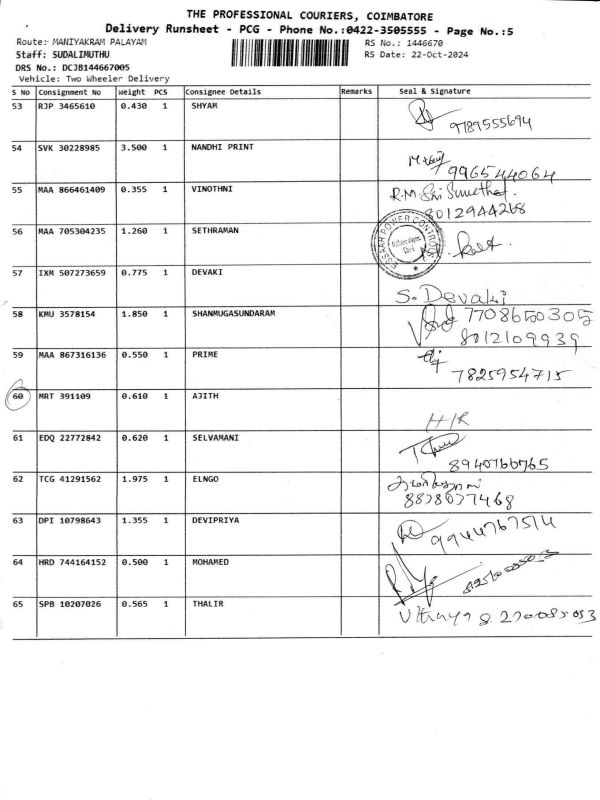 THE PROFESSIONAL COURIERS, COIMBATORE
Delivery Runsheet - PCG - Phone No.:0422-3505555 - Page No.:5
Route:- MANIYAKRAM PALAYAM RS No.: 1446670
Staff: SUDALIMUTHU RS Date: 22-Oct-2024
DRS No.: DCJB144667005
Vehicle: Two Wheeler Delivery
S No Consignment No Weight PCS Consignee Details Remarks Seal & Signature
53 RJP 3465610 0.430 1 SHYAM
9789555694
54 SVK 30228985 3.500 1 NANDHI PRINT
9965544064
55 MAA 866461409 0.355 1 VINOTHNI R.M.
8012944268
56 MAA 705304235 1.260 1 SETHRAMAN
ESSAAR POWER CONTROLS
57 IXM 507273659 0.775 1 DEVAKI
S. Devaki
58 KMU 3578154 1.850 1 SHANMUGASUNDARAM 7708650305
8012109939
59 MAA 867316136 0.550 1 PRIME
7825954715
60 MRT 391109 0.610 1 AJITH
H/R
61 EDQ 22772842 0.620 1 SELVAMANI
8940766765
62 TCG 41291562 1.975 1 ELNGO
8838077468
63 DPI 10798643 1.355 1 DEVIPRIYA
9944767514
64 HRD 744164152 0.500 1 MOHAMED
65 SPB 10207026 0.565 1 THALIR